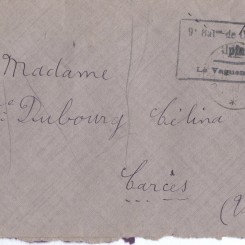 9e Baton de
Le Vaguem
Madame
Dubourg Célina
Carcès
(V